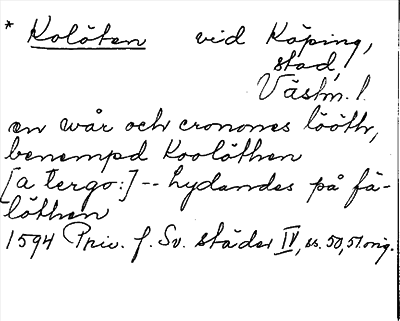 * Kolöten vid Köping,
stad,
Västm. l.
en wår och cronones lööth,
benempd Koolöthen
[a tergo:] -- Lydandes på få-
löthen
1594 Priv. f. Sv. städer IV, ss. 50, 51. orig.